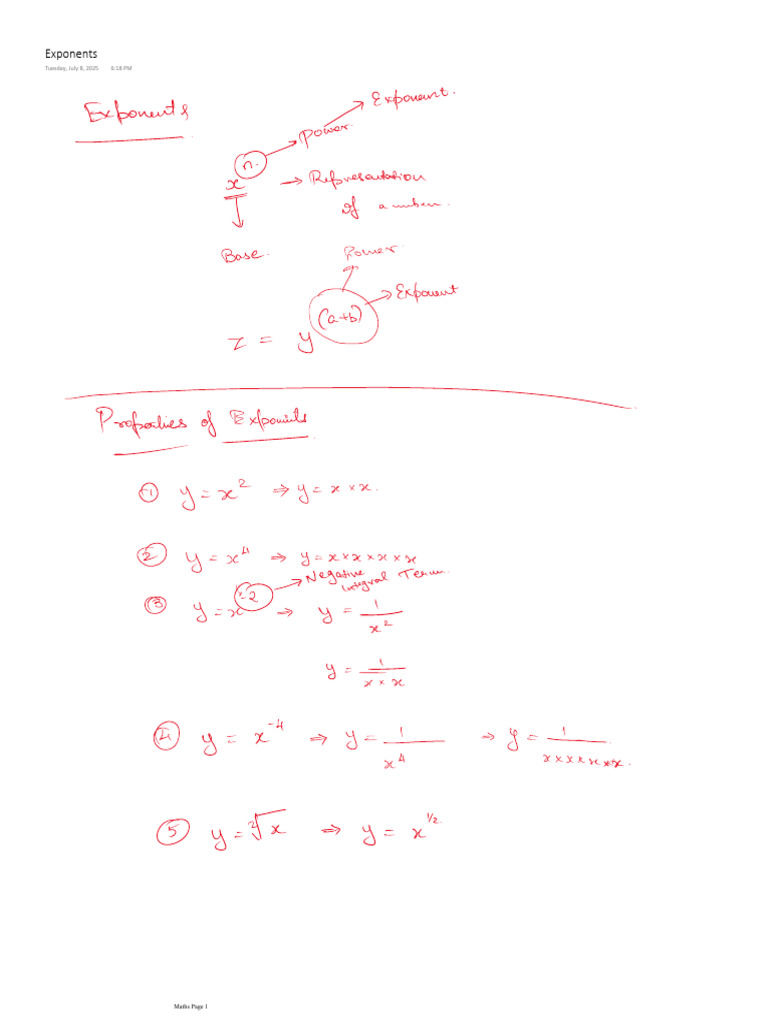 Exponents
Tuesday, July 8, 2025 6:18 PM
Exponents
xⁿ → Power → Exponent.
→ Representation
of a number.
Base.
Power.
Exponent
z = y^(a+b)
Properties of Exponents
① y = x² ⇒ y = x × x.
② y = x⁴ ⇒ y = x × x × x × x
→ Negative integral Term.
③ y = x⁻² ⇒ y = 1/x²
y = 1/(x × x)
④ y = x⁻⁴ ⇒ y = 1/x⁴ ⇒ y = 1/(x × x × x × x).
⑤ y = ²√x ⇒ y = x^(1/2).
Maths Page 1